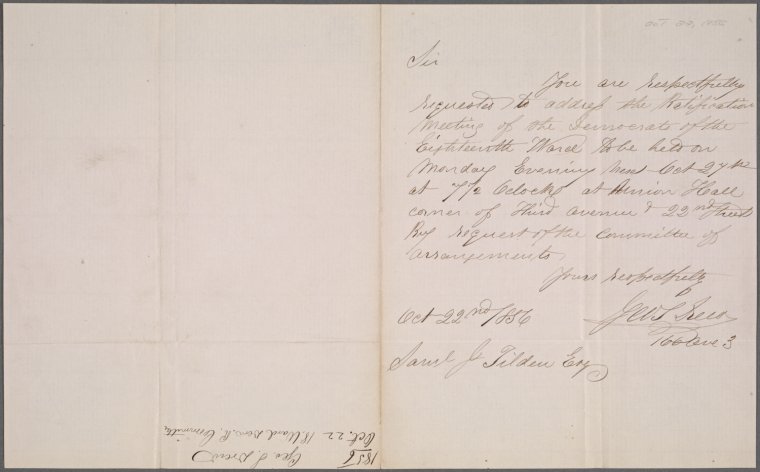 Oct 22, 1856
Sir
You are respectfully
requested to address the Ratification
Meeting of the Democrats of the
Eighteenth Ward to be held on
Monday Evening next Oct 27th
at 7 1/2 Oclock at Union Hall
corner of Third avenue & 22nd Street
By request of the Committee of
arrangements
Yours respectfully
Oct 22nd/1856
3
Saml J Tilden Esq
1856
Oct. 22
18. Ward Dem. R. Committee
Geo. S